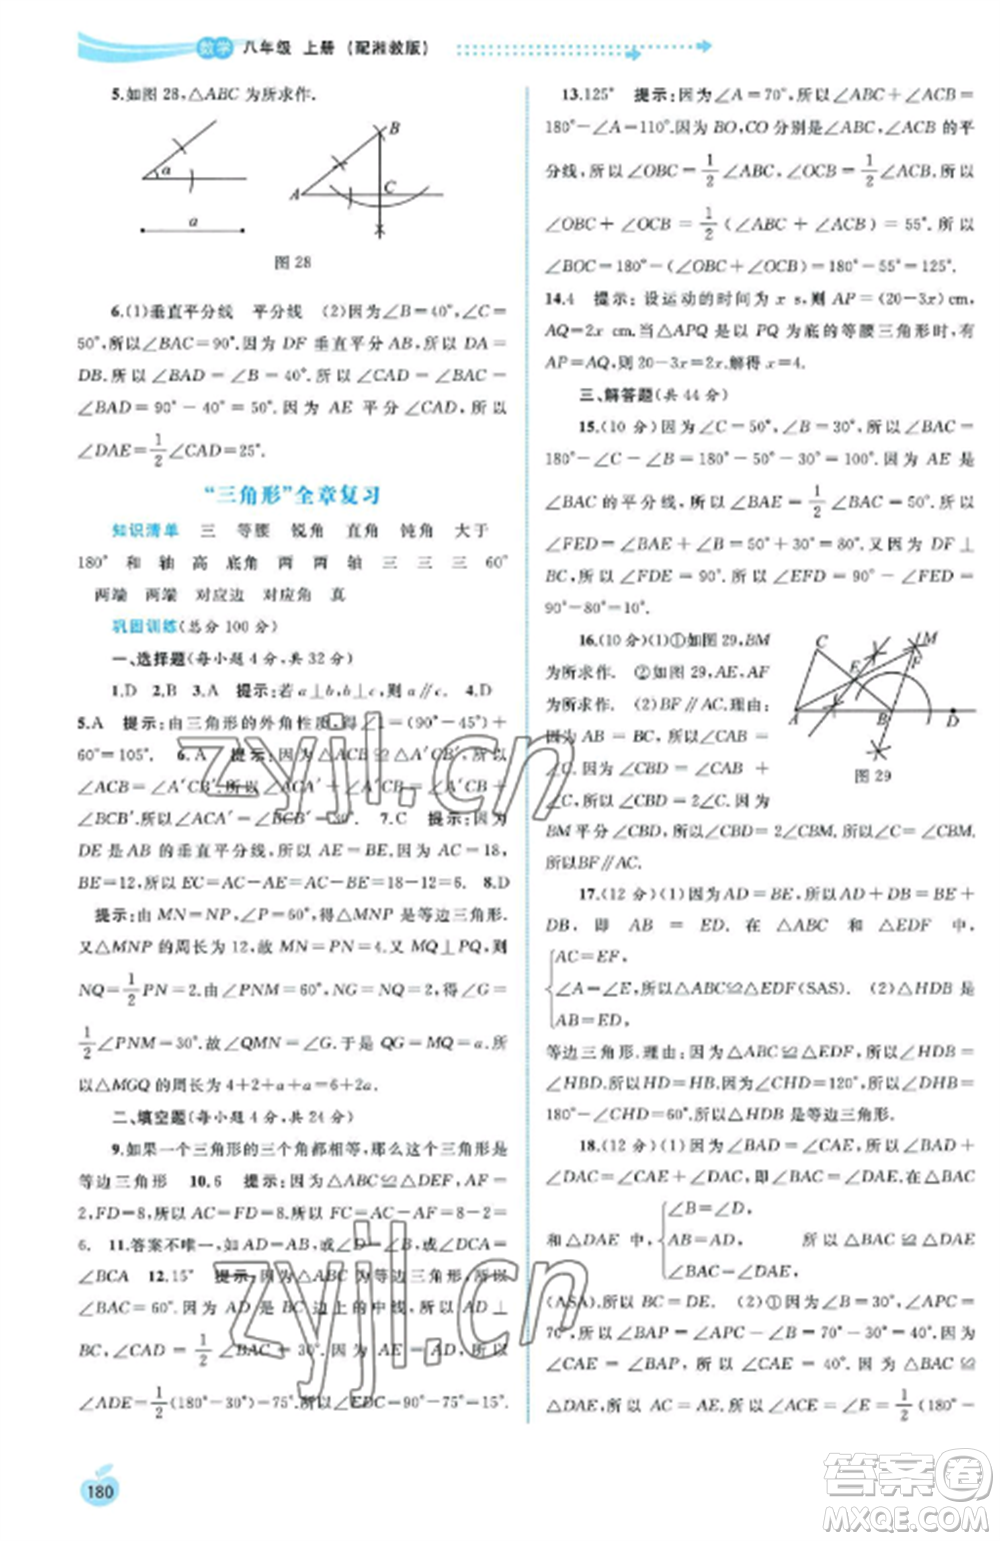 数学 八年级 上册 (配湘教版)
5.如图 28,△ABC 为所求作.
α
a
B
A
C
图 28
6.(1)垂直平分线 平分线 (2)因为∠B=40°,∠C=
50°,所以∠BAC=90°.因为 DF 垂直平分 AB,所以 DA=
DB.所以∠BAD=∠B=40°.所以∠CAD=∠BAC-
∠BAD=90°-40°=50°.因为 AE 平分∠CAD,所以
∠DAE=1/2∠CAD=25°.
“三角形”全章复习
知识清单 三 等腰 锐角 直角 钝角 大于
180° 和 轴 高 底角 两 两 轴 三 三 三 60°
两端 两端 对应边 对应角 真
巩固训练(总分 100 分)
一、选择题(每小题 4 分,共 32 分)
1.D 2.B 3.A 提示:若 a⊥b,b⊥c,则 a∥c. 4.D
5.A 提示:由三角形的外角性质,得∠1=(90°-45°)+
60°=105°. 6.A 提示:因为△ACB≌△A′CB′,所以
∠ACB=∠A′CB′.所以∠ACB-∠A′CB=∠A′CB′-∠A′CB,即∠ACA′=
∠BCB′.所以∠ACA′=∠BCB′=30°. 7.C 提示:因为
DE 是 AB 的垂直平分线,所以 AE=BE.因为 AC=18,
BE=12,所以 EC=AC-AE=AC-BE=18-12=6. 8.D
提示:由 MN=NP,∠P=60°,得△MNP 是等边三角形.
又△MNP 的周长为 12,故 MN=PN=4.又 MQ⊥PQ,则
NQ=1/2PN=2.由∠PNM=60°,NG=NQ=2,得∠G=
1/2∠PNM=30°.故∠QMN=30°=∠G.于是 QG=MQ=a.所
以△MGQ 的周长为 4+2+a+a=6+2a.
二、填空题(每小题 4 分,共 24 分)
9.如果一个三角形的三个角都相等,那么这个三角形是
等边三角形 10.6 提示:因为△ABC≌△DEF,AF=
2,FD=8,所以 AC=FD=8.所以 FC=AC-AF=8-2=
6. 11.答案不唯一,如 AD=AB,或∠D=∠B,或∠DEA=
∠BCA 12.15° 提示:因为△ABC 为等边三角形,所以
∠BAC=60°.因为 AD 是 BC 边上的中线,所以 AD⊥
BC,∠CAD=1/2∠BAC=30°.因为 AE=AD,所以
∠ADE=1/2(180°-30°)=75°.所以∠EDC=90°-75°=15°.
13.125° 提示:因为∠A=70°,所以∠ABC+∠ACB=
180°-∠A=110°.因为 BO,CO 分别是∠ABC,∠ACB 的平
分线,所以∠OBC=1/2∠ABC,∠OCB=1/2∠ACB.所以
∠OBC+∠OCB=1/2(∠ABC+∠ACB)=55°.所以
∠BOC=180°-(∠OBC+∠OCB)=180°-55°=125°.
14.4 提示:设运动的时间为 x s,则 AP=(20-3x)cm,
AQ=2x cm.当△APQ 是以 PQ 为底的等腰三角形时,有
AP=AQ,则 20-3x=2x.解得 x=4.
三、解答题(共 44 分)
15.(10 分)因为∠C=50°,∠B=30°,所以∠BAC=
180°-50°-30°=100°.因为 AE 是
∠BAC 的平分线,所以∠BAE=1/2∠BAC=50°.所以
∠FED=∠BAE+∠B=50°+30°=80°.又因为 DF⊥
BC,所以∠FDE=90°.所以∠EFD=90°-∠FED=
90°-80°=10°.
16.(10 分)(1)①如图 29,BM
为所求作. ②如图 29,AE,AF
为所求作. (2)BF∥AC.理由:
因为 AB=BC,所以∠CAB=
∠C.因为∠CBD=∠CAB+
∠C,所以∠CBD=2∠C.因为
BM 平分∠CBD,所以∠CBD=2∠CBM.所以∠C=∠CBM.
所以 BF∥AC.
C
M
E
F
A
B
D
图 29
17.(12 分)(1)因为 AD=BE,所以 AD+DB=BE+
DB,即 AB=ED.在△ABC 和△EDF 中,
AC=EF,
∠A=∠E,所以△ABC≌△EDF(SAS). (2)△HDB 是
AB=ED,
等边三角形.理由:因为△ABC≌△EDF,所以∠HDB=
∠HBD.因为∠CHD=120°,所以∠DHB=
180°-∠CHD=60°.所以△HDB 是等边三角形.
18.(12 分)(1)因为∠BAD=∠CAE,所以∠BAD+
∠DAC=∠CAE+∠DAC,即∠BAC=∠DAE.在△BAC
∠B=∠D,
和△DAE 中, AB=AD, 所以△BAC≌△DAE
∠BAC=∠DAE,
(ASA).所以 BC=DE. (2)①因为∠B=30°,∠APC=
70°,所以∠BAP=∠APC-∠B=70°-30°=40°.所以
∠CAE=∠BAP=40°.因为△BAC≌
△DAE,所以 AC=AE.所以∠ACE=∠E=1/2(180°-
180
zyjl.cn
zyjl.cn
答案圈
MXQE.COM